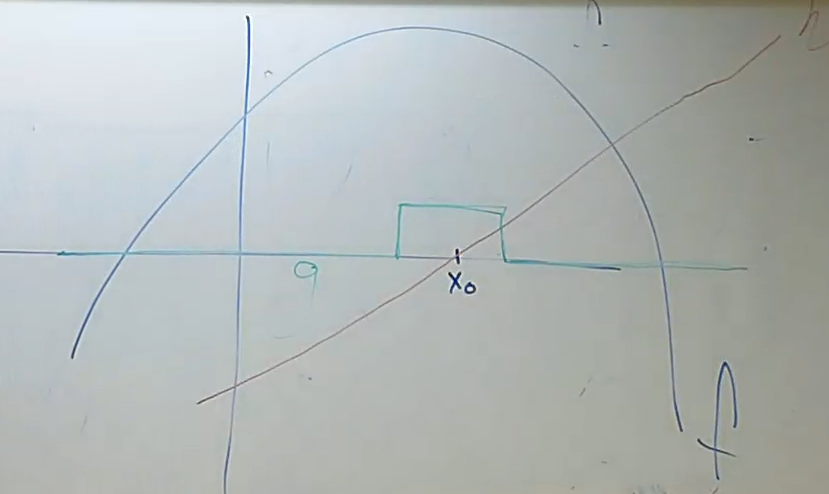 h
g
x₀
f